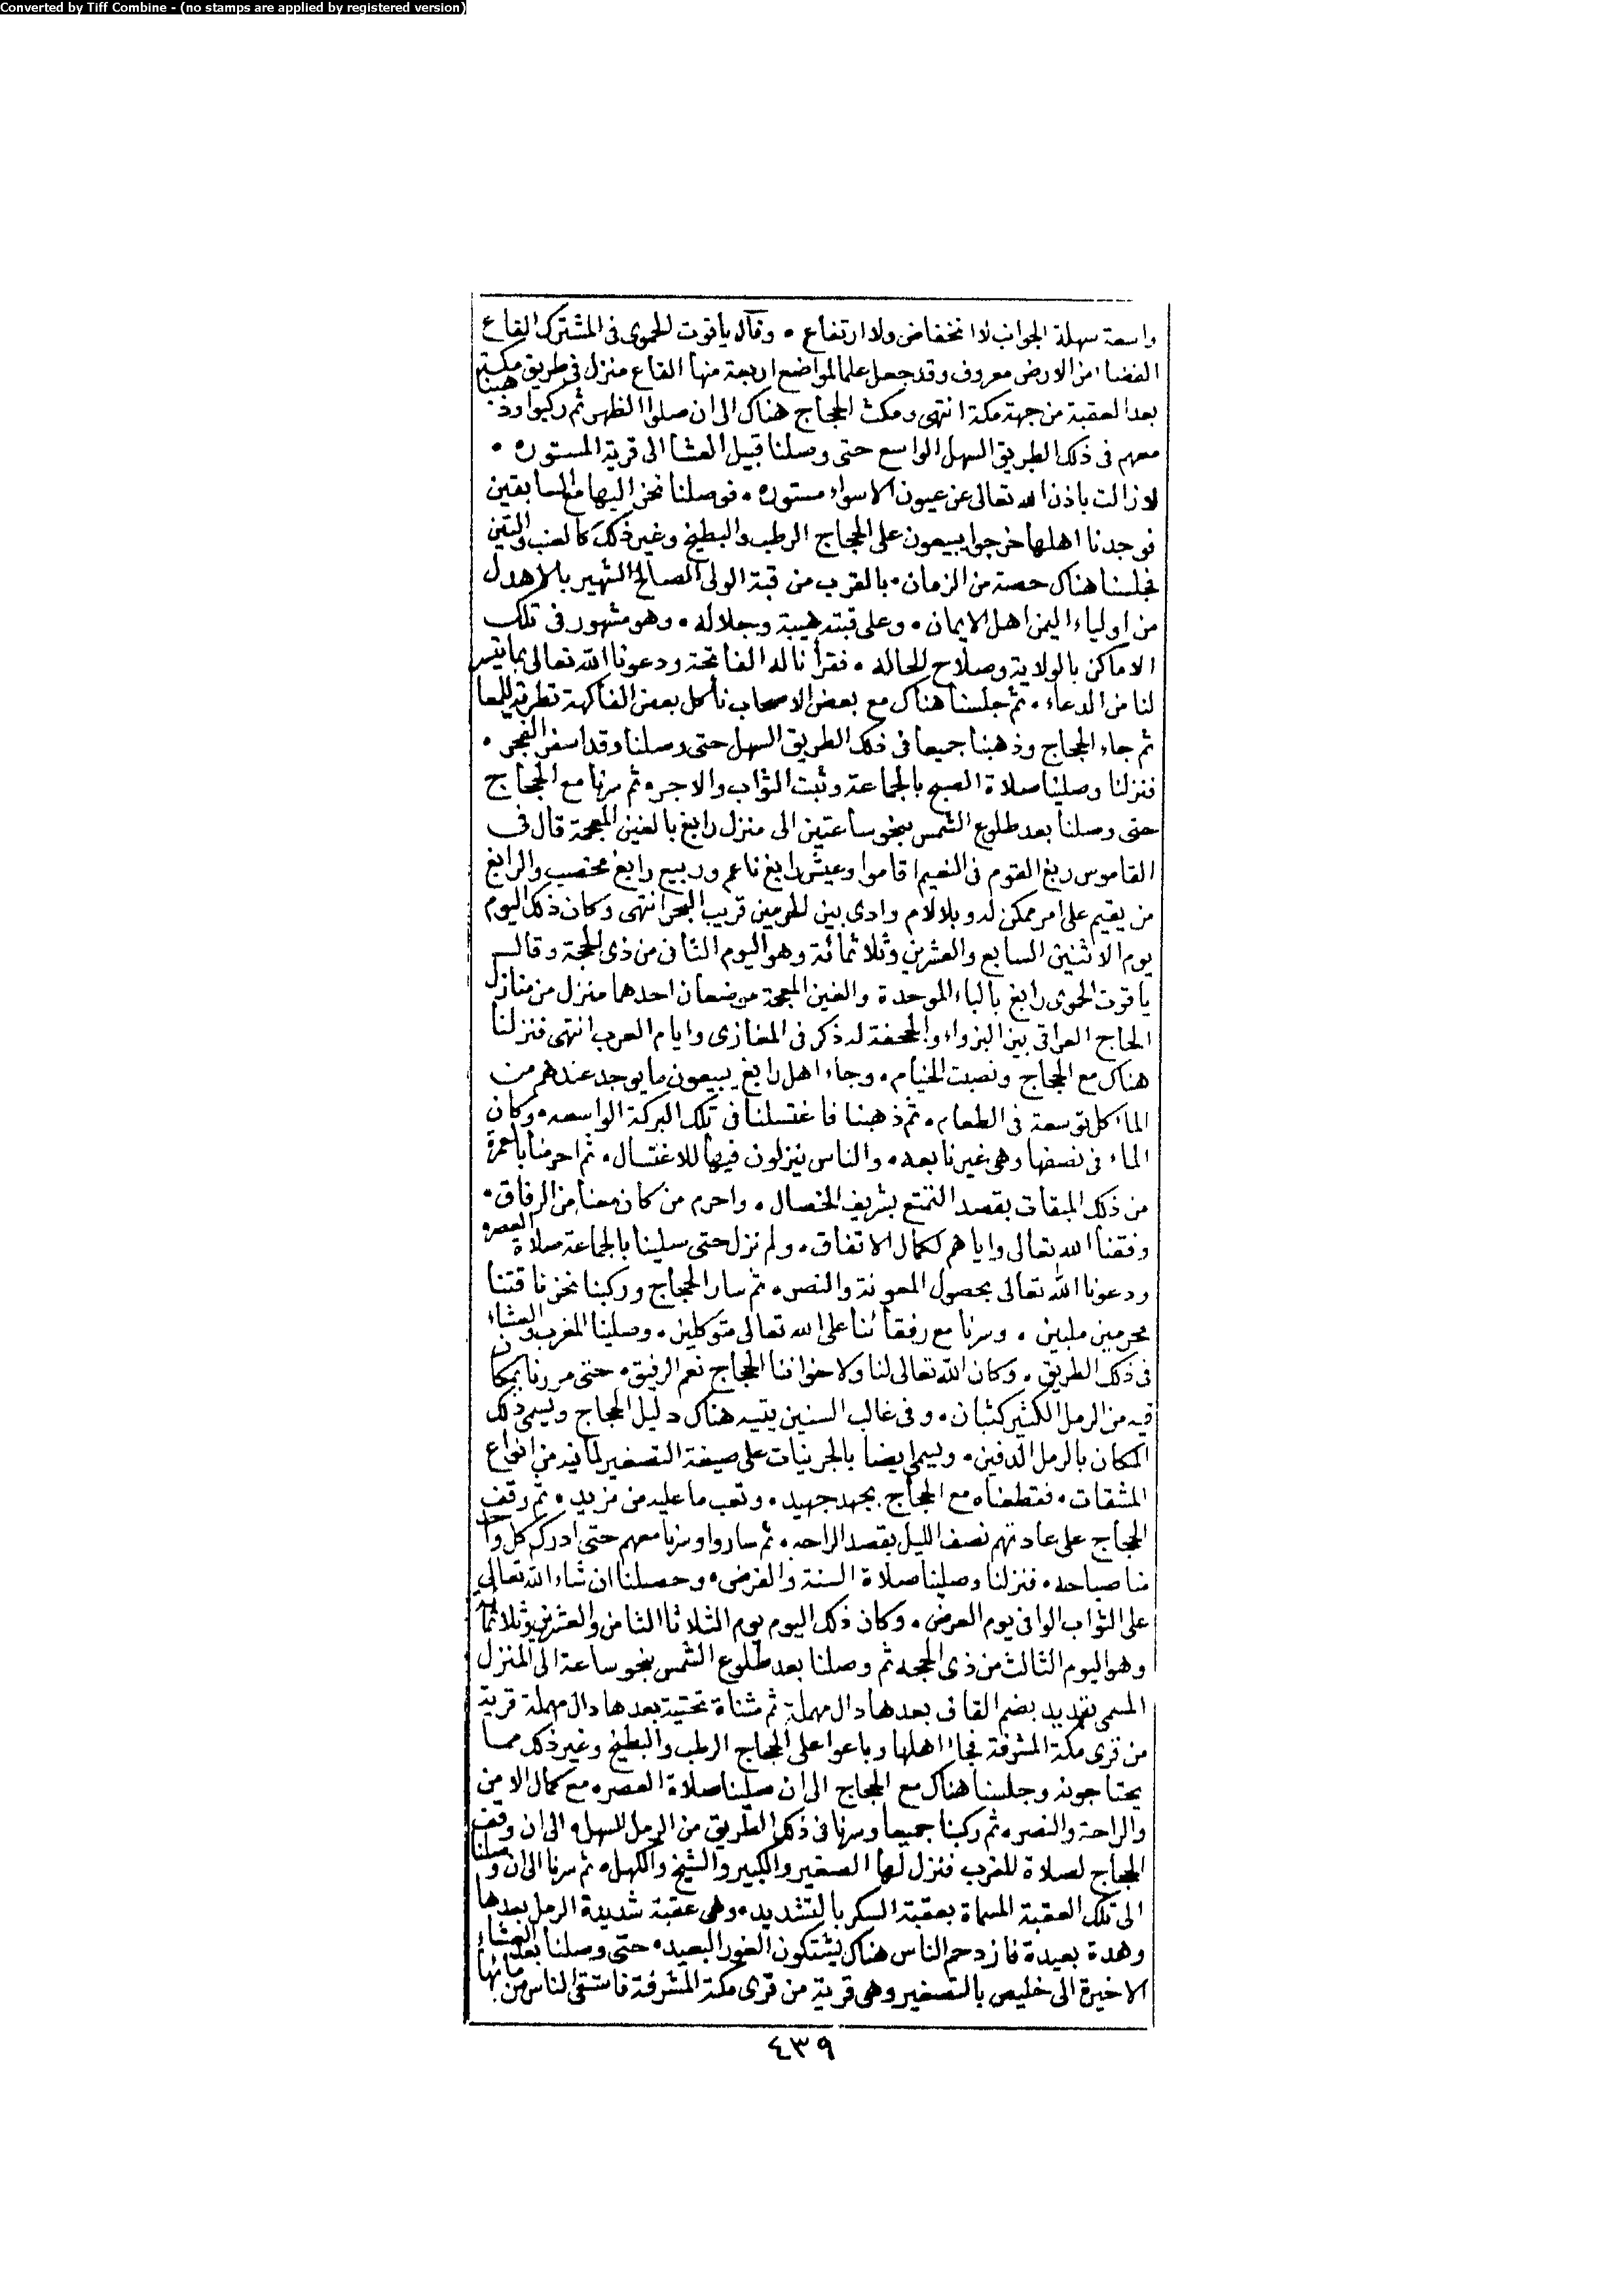 Converted by Tiff Combine - (no stamps are applied by registered version)
واسعة سهلة الجوانب لا انخفاض ولا ارتفاع • وقال ياقوت الحموى فى المشترك القاع
الفضاء من الارض معروف وقد جعل علما لمواضع اربعة منها القاع منزل فى طريق مكة
بعد العقبة من جهة مكة انتهى ومكث الحجاج هناك الى ان صلوا الظهر ثم ركبوا وذهبنا
معهم فى ذلك الطريق السهل الواسع حتى وصلنا قبيل العشا الى قرية المستوره •
لا زالت باذن الله تعالى عن عيون الاسواء مستوره • فوصلنا نحن اليها مع السابقين
فوجدنا اهلها خرجوا يبيعون على الحجاج الرطب والبطيخ وغير ذلك كالعنب والتين
فجلسنا هناك حصة من الزمان • بالقرب من قبة الولى الصالح الشهير بالاهدل
من اولياء اليمن اهل الايمان • وعلى قبته هيبة وجلاله • وهو مشهور فى تلك
الاماكن بالولاية وصلاح الحاله • فقرأنا له الفاتحة ودعونا الله تعالى بما تيسر
لنا من الدعاء • ثم جلسنا هناك مع بعض الاصحاب نأكل بعض الفاكهة تطرية للمعا
ثم جاء الحجاج وذهبنا جميعا فى ذلك الطريق السهل حتى وصلنا وقد اسفر الفجر •
فنزلنا وصلينا صلاة الصبح بالجماعة وثبت الثواب والاجر • ثم سرنا مع الحجاج
حتى وصلنا بعد طلوع الشمس بنحو ساعتين الى منزل رابغ بالغين المعجمة قال فى
القاموس ربغ القوم فى النعيم اقاموا وعيش رابغ ناعم وربيع رابغ مخصب والرابغ
من يقيم على امر ممكن له وبلا لام وادى بين الحرمين قريب البحر انتهى وكان ذلك اليوم
يوم الاثنين السابع والعشرين وثلاثمائة وهو اليوم الثانى من ذى الحجة وقال
ياقوت الحموى رابغ بالباء الموحدة والغين المعجمة موضعان احدهما منزل من منازل
الحاج العراقى بين البزواء والجحفة له ذكر فى المغازى وايام العرب انتهى فنزلنا
هناك مع الحجاج ونصبت الخيام • وجاء اهل رابغ يبيعون ما يوجد عندهم من
المآكل توسعة فى الطعام • ثم ذهبنا فاغتسلنا فى تلك البركة الواسعه • وكان
الماء فى نصفها وهى غير نابعه • والناس ينزلون فيها للاغتسال • ثم احرمنا بالعمرة
من ذلك الميقات بقصد التمتع بشريف الخصال • واحرم من كان معنا من الرفاق •
وفقنا الله تعالى واياهم لكمال الاتفاق • ولم نزل حتى صلينا بالجماعة صلاة العصر •
ودعونا الله تعالى بحصول المعونة والنصر • ثم سار الحجاج وركبنا نحن ناقتنا
محرمين ملبين • وسرنا مع رفقائنا على الله تعالى متوكلين • وصلينا المغرب والعشاء
فى ذلك الطريق • وكان الله تعالى لنا ولاخواننا الحجاج نعم الرفيق • حتى مررنا بمكان
فيه من الرمل الكثير كثبان • وفى غالب السنين يتيه هناك دليل الحجاج ويسمى ذلك
المكان بالرمل الدفين • ويسمى ايضا بالجرينات على صيغة التصغير لما فيه من انواع
المشقات • فقطعناه مع الحجاج بجهد جهيد • وتعب ما عليه من مزيد • ثم وقف
الحجاج على عادتهم نصف الليل بقصد الراحه • ثم ساروا وسرنا معهم حتى ادرك كل واحد
منا صباحه • فنزلنا وصلينا صلاة السنة والفرض • وحصلنا ان شاء الله تعالى
على الثواب الوافى يوم العرض • وكان ذلك اليوم يوم الثلاثا الثامن والعشرين وثلاثمائة
وهو اليوم الثالث من ذى الحجه ثم وصلنا بعد طلوع الشمس بنحو ساعة الى المنزل
المسمى بقديد بضم القاف بعدها دال مهملة ثم مثناة تحتية بعدها دال مهملة قرية
من قرى مكة المشرفة فجاء اهلها وباعوا على الحجاج الرطب والبطيخ وغير ذلك مما
يحتاجونه وجلسنا هناك مع الحجاج الى ان صلينا صلاة العصر • مع كمال الامن
والراحة والنصر • ثم ركبنا جميعا وسرنا فى ذلك الطريق من الرمل السهل • الى ان وقف
الحجاج لصلاة المغرب فنزل لها الصغير والكبير والشيخ والكهل • ثم سرنا الى ان وصلنا
الى تلك العقبة المسماة بعقبة السكر بالتشديد • وهى عقبة شديدة الرمل بعدها
وهدة بعيدة فازدحم الناس هناك يشتكون الغور البعيد • حتى وصلنا بعد العشاء
الاخيرة الى خليص بالتصغير وهى قرية من قرى مكة المشرفة فاستقى الناس من مائها
٤٣٩